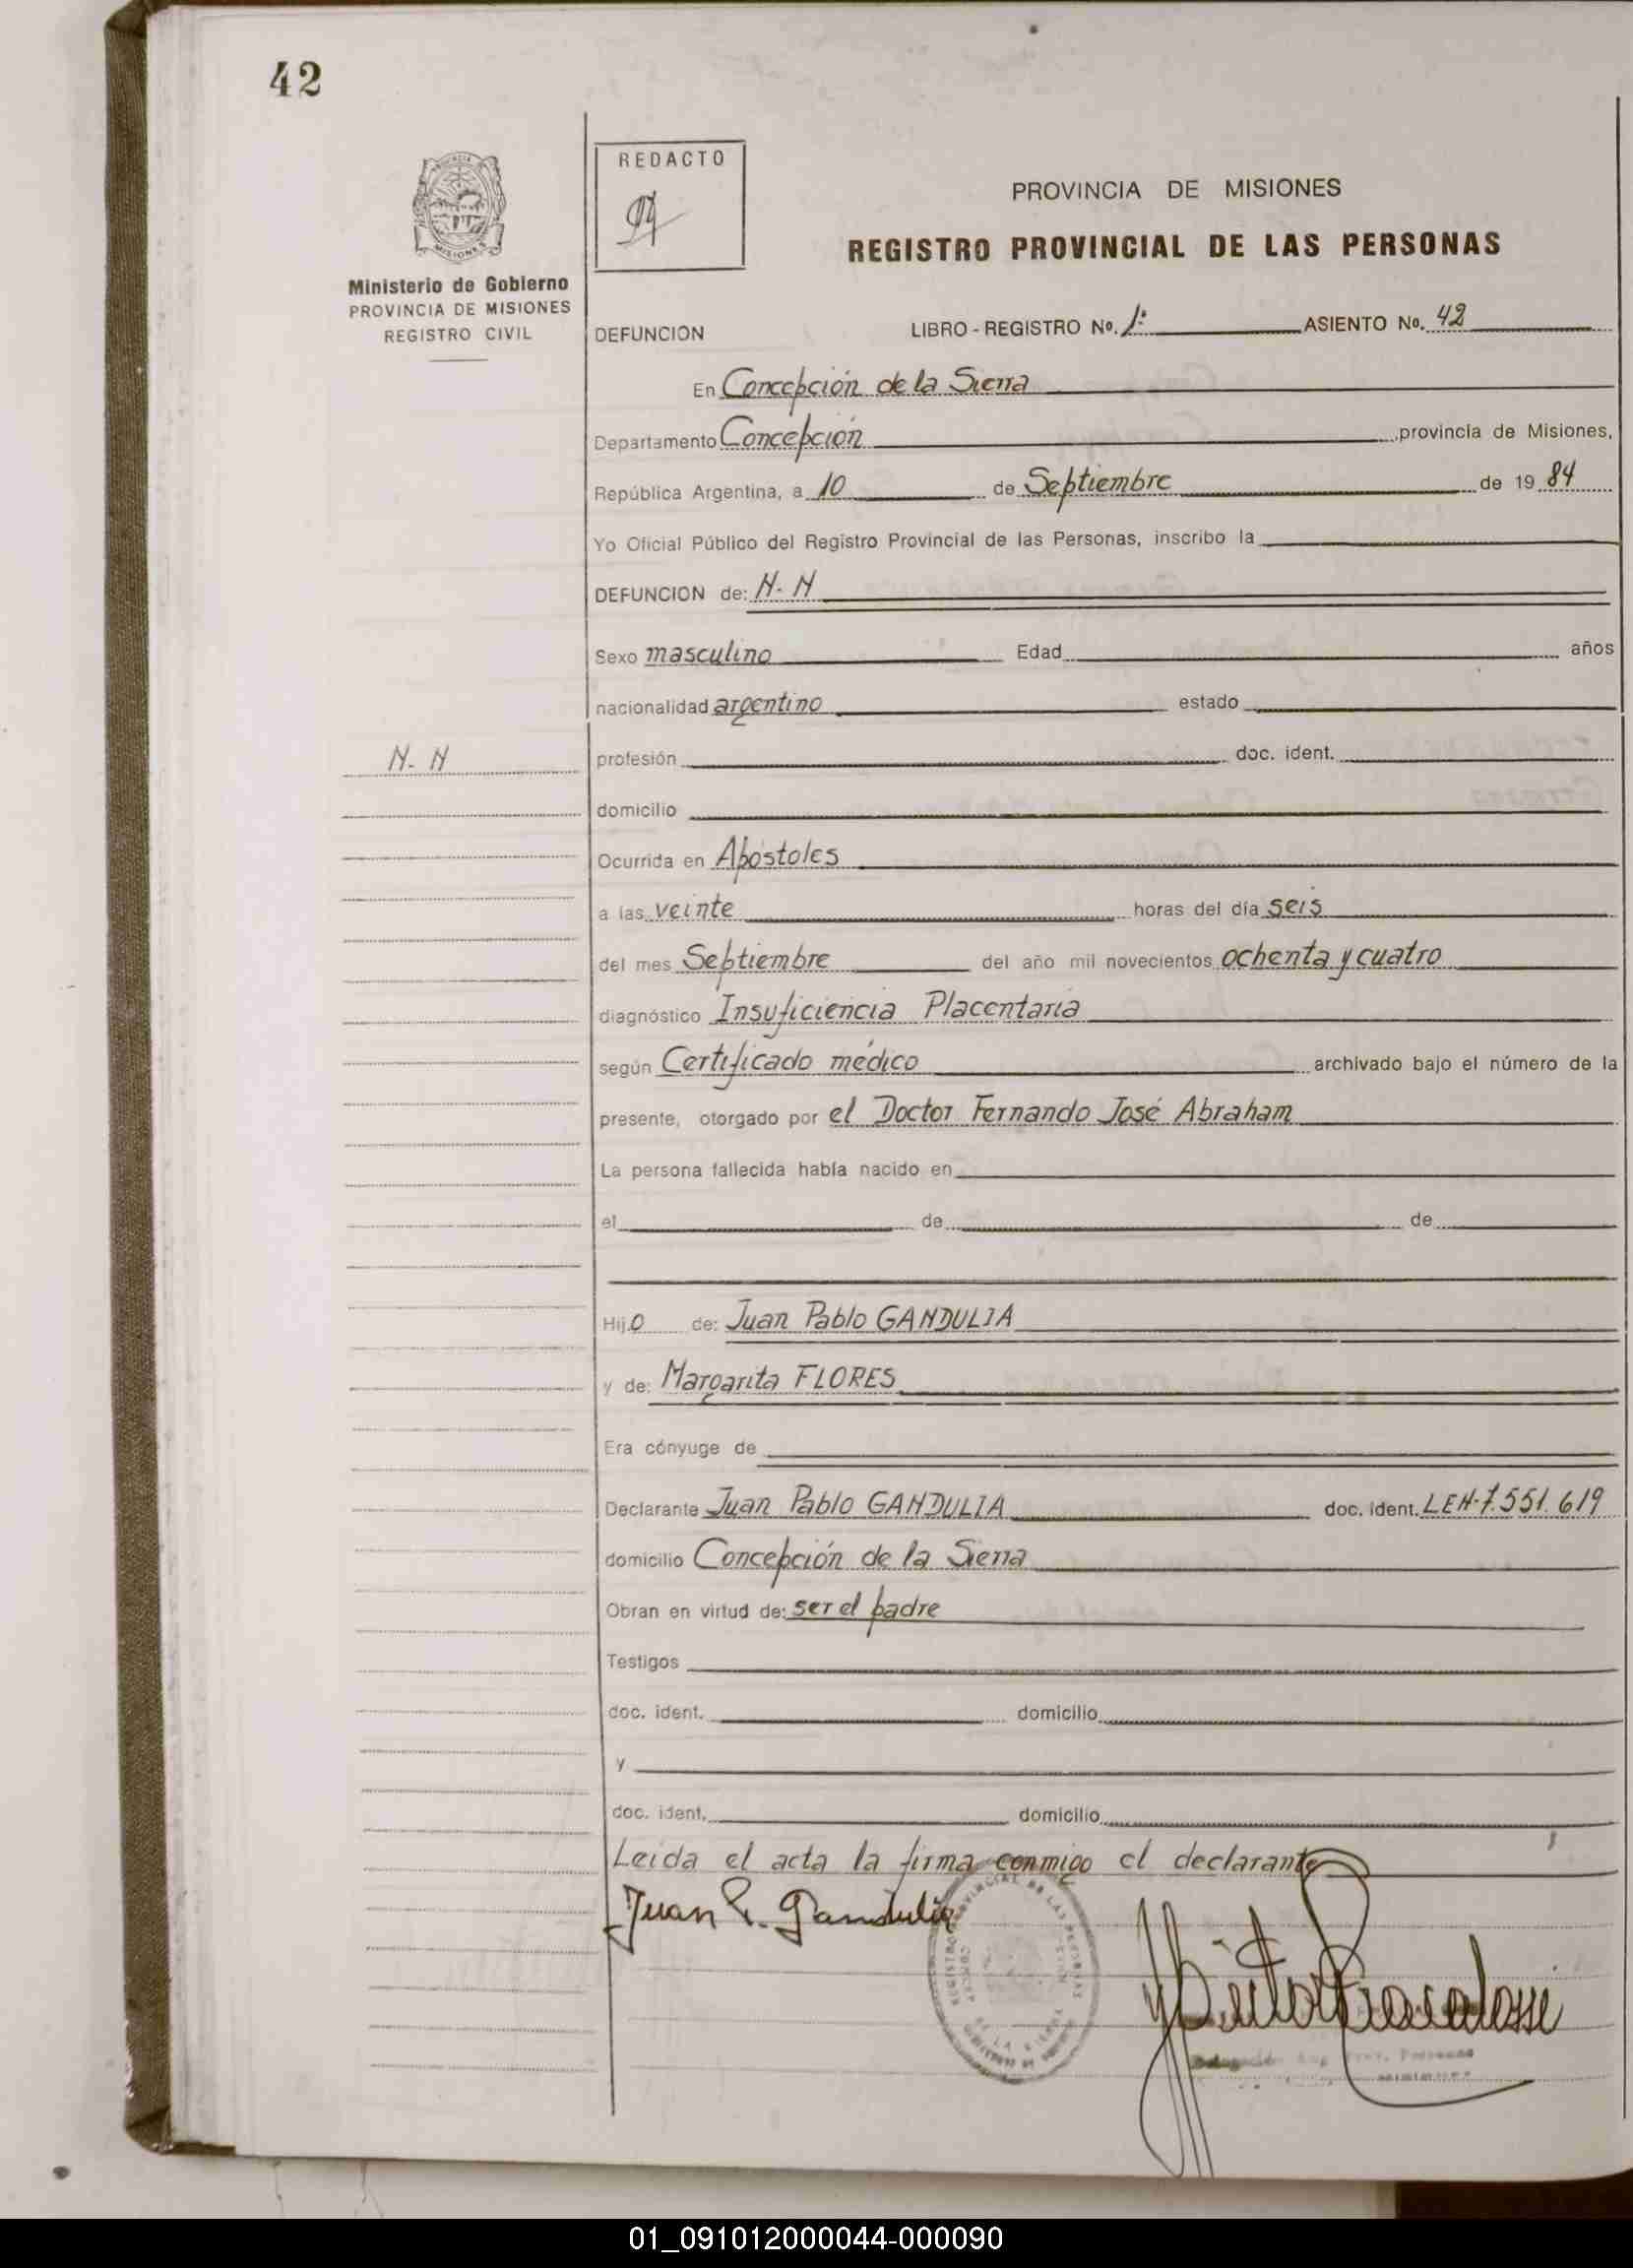 42
REDACTO
PROVINCIA DE MISIONES
REGISTRO PROVINCIAL DE LAS PERSONAS
Ministerio de Gobierno
PROVINCIA DE MISIONES
REGISTRO CIVIL
DEFUNCION LIBRO - REGISTRO No. 1º ASIENTO No. 42
En Concepción de la Sierra
Departamento Concepción provincia de Misiones,
República Argentina, a 10 de Septiembre de 19 84
Yo Oficial Público del Registro Provincial de las Personas, inscribo la
DEFUNCION de: N. N
Sexo masculino Edad años
nacionalidad argentino estado
N. N
profesión doc. ident.
domicilio
Ocurrida en Apóstoles
a las veinte horas del día seis
del mes Septiembre del año mil novecientos ochenta y cuatro
diagnóstico Insuficiencia Placentaria
según Certificado médico archivado bajo el número de la
presente, otorgado por el Doctor Fernando José Abraham
La persona fallecida había nacido en
el de de
Hijo de: Juan Pablo GANDULIA
y de: Margarita FLORES
Era cónyuge de
Declarante Juan Pablo GANDULIA doc. ident. LEN-7.551.619
domicilio Concepción de la Sierra
Obran en virtud de: ser el padre
Testigos
doc. ident. domicilio
y
doc. ident. domicilio
Leida el acta la firma conmigo el declarante
Juan P. Gandulia
01_091012000044-000090